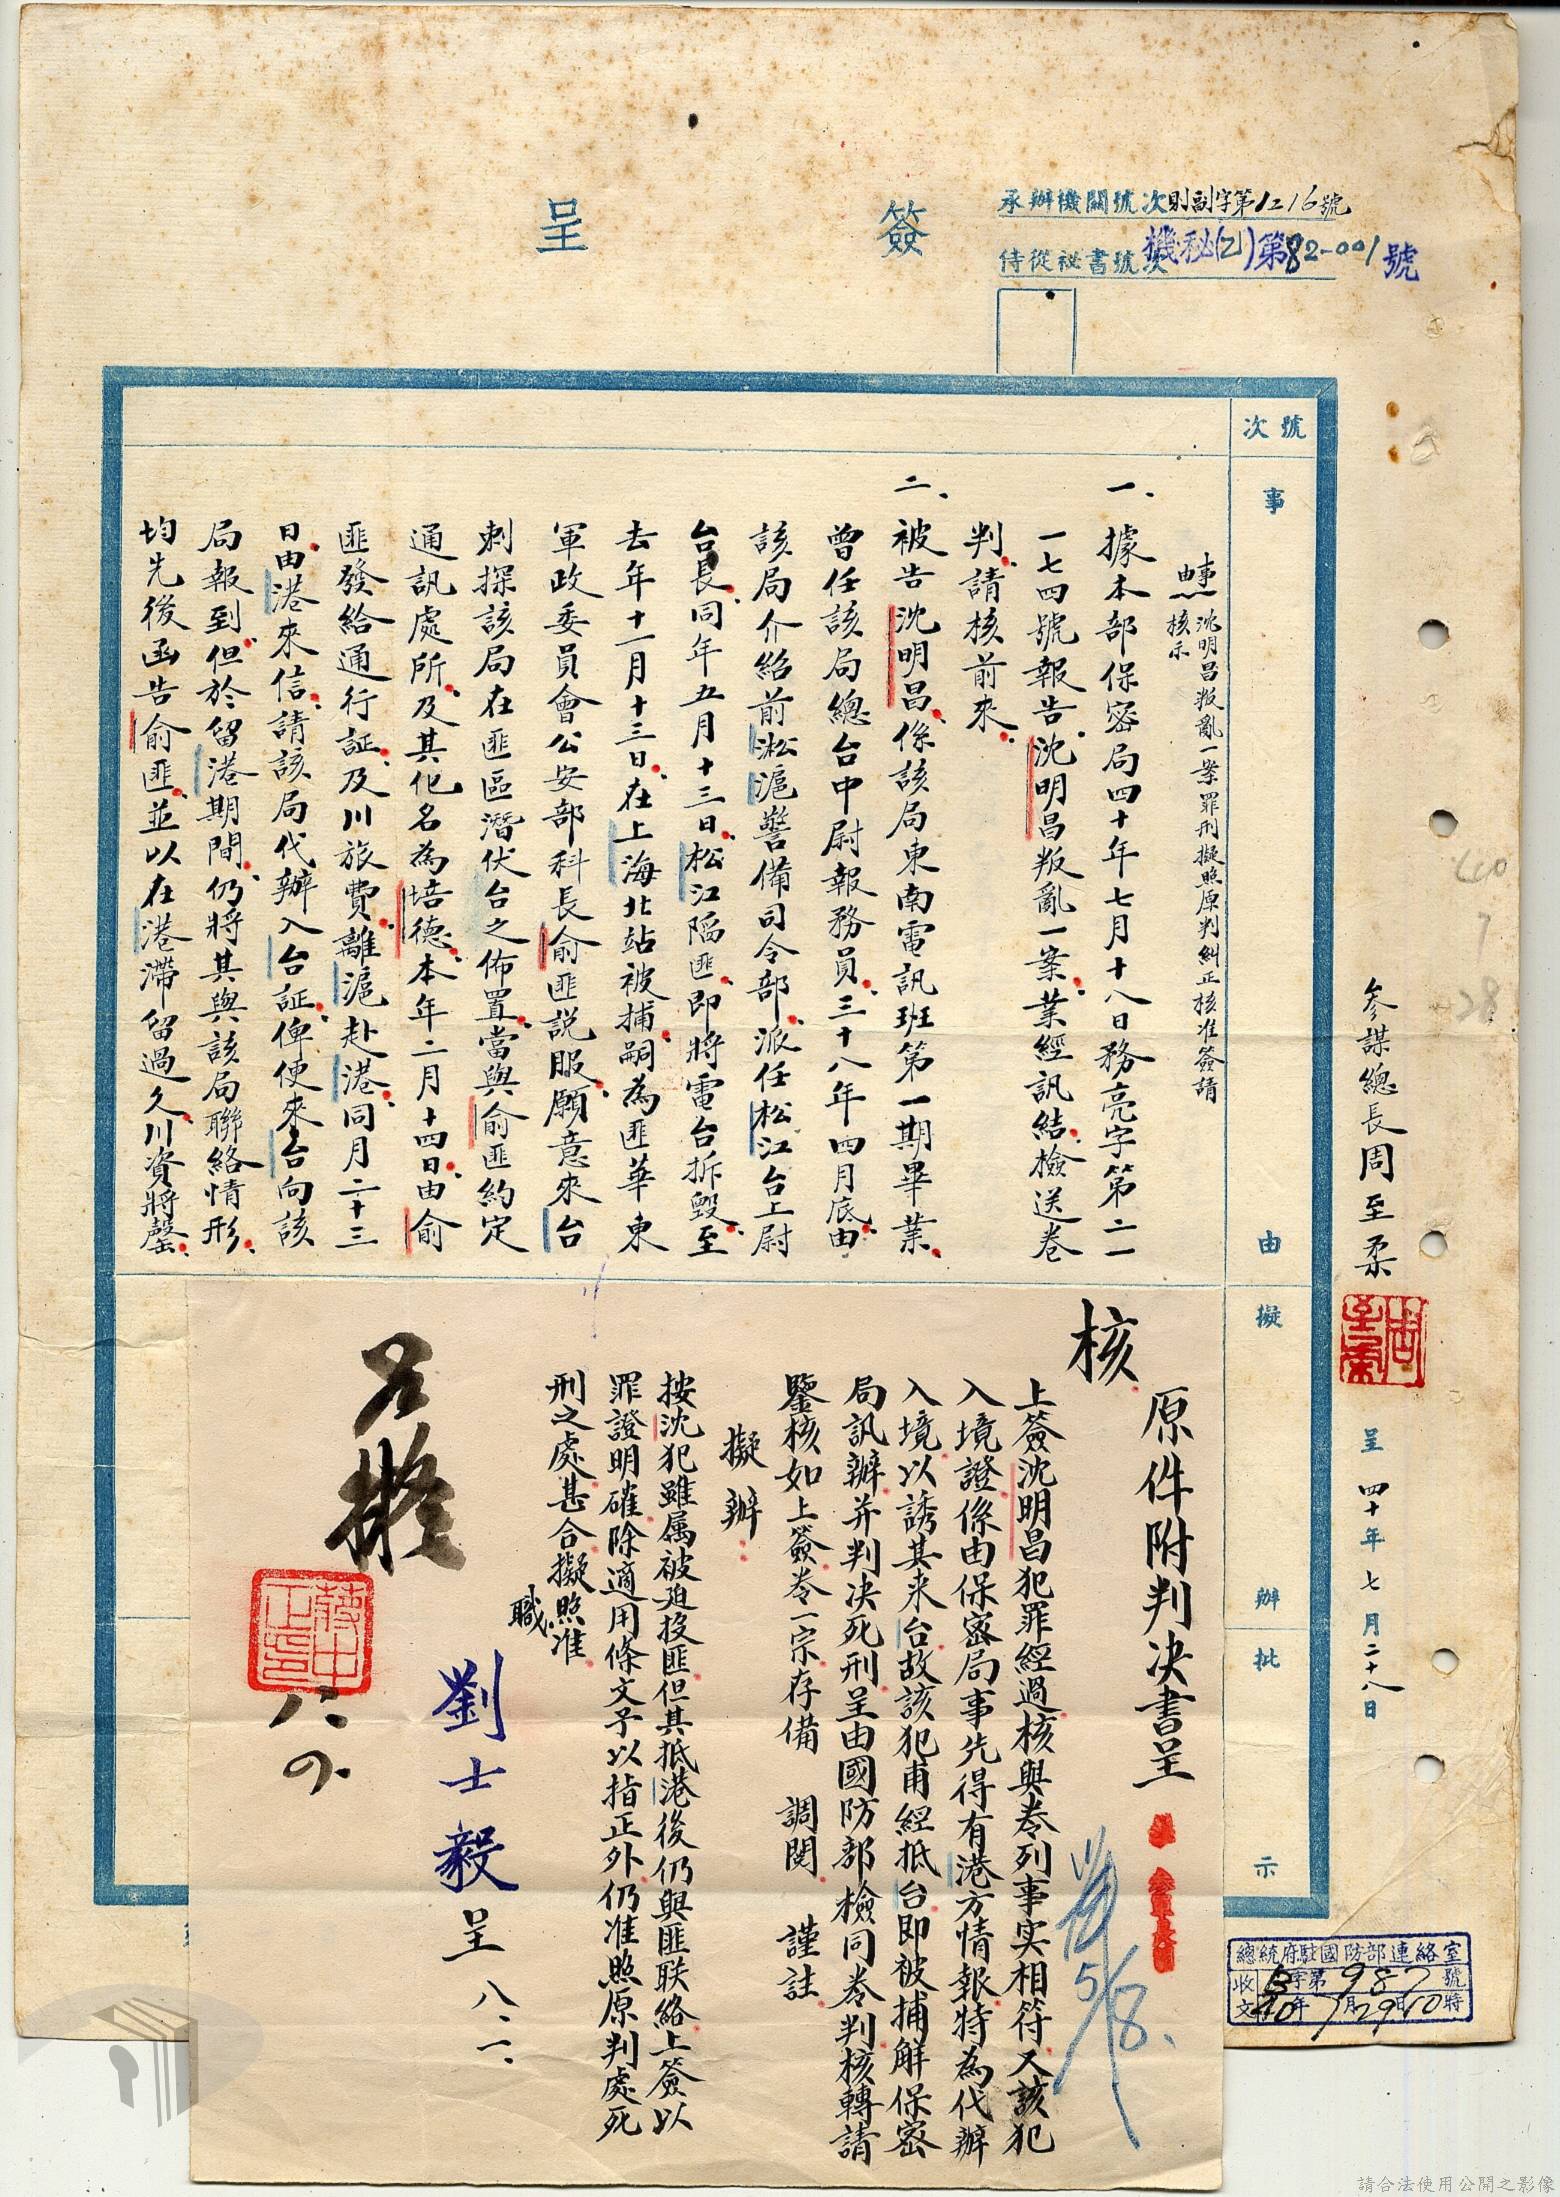 簽呈
承辦機關號次則副字第1216號
侍從祕書號次機秘(乙)第82-001號
參謀總長周至柔
呈 四十年七月二十八日
號次
事由
擬辦
批示
事由 沈明昌叛亂一案罪刑擬照原判糾正核准簽請
核示
一、據本部保密局四十年七月十八日務亮字第二一
一七四號報告沈明昌叛亂一案業經訊結檢送卷
判請核前來
二、被告沈明昌係該局東南電訊班第一期畢業
曾任該局總台中尉報務員三十八年四月底由
該局介紹前淞滬警備司令部派任松江台上尉
台長同年五月十三日松江陷匪即將電台拆毀至
去年十一月十三日在上海北站被捕嗣為匪華東
軍政委員會公安部科長俞匪說服願意來台
刺探該局在匪區潛伏台之佈置當與俞匪約定
通訊處所及其化名為培德本年二月十四日由俞
匪發給通行証及川旅費離滬赴港同月二十三
日由港來信請該局代辦入台証俾便來台向該
局報到但於留港期間仍將其與該局聯絡情形
均先後函告俞匪並以在港滯留過久川資將罄
核
原件附判決書呈
上簽沈明昌犯罪經過核與卷列事实相符又該犯
入境證係由保密局事先得有港方情報特為代辦
入境以誘其來台故該犯甫經抵台即被捕解保密
局訊辦并判決死刑呈由國防部檢同卷判核轉請
鑒核如上簽卷一宗存備 調閱 謹註
擬辦
按沈犯雖属被迫投匪但其抵港後仍與匪联絡上簽以
罪證明確除適用條文予以指正外仍准照原判處死
刑之處甚合擬照准
職 劉士毅 呈 八、一、
如擬
蔣中正印
總統府駐國防部連絡室
收文 B字第987號
40年7月29日10時
40
7
28
5/8
請合法使用公開之影像